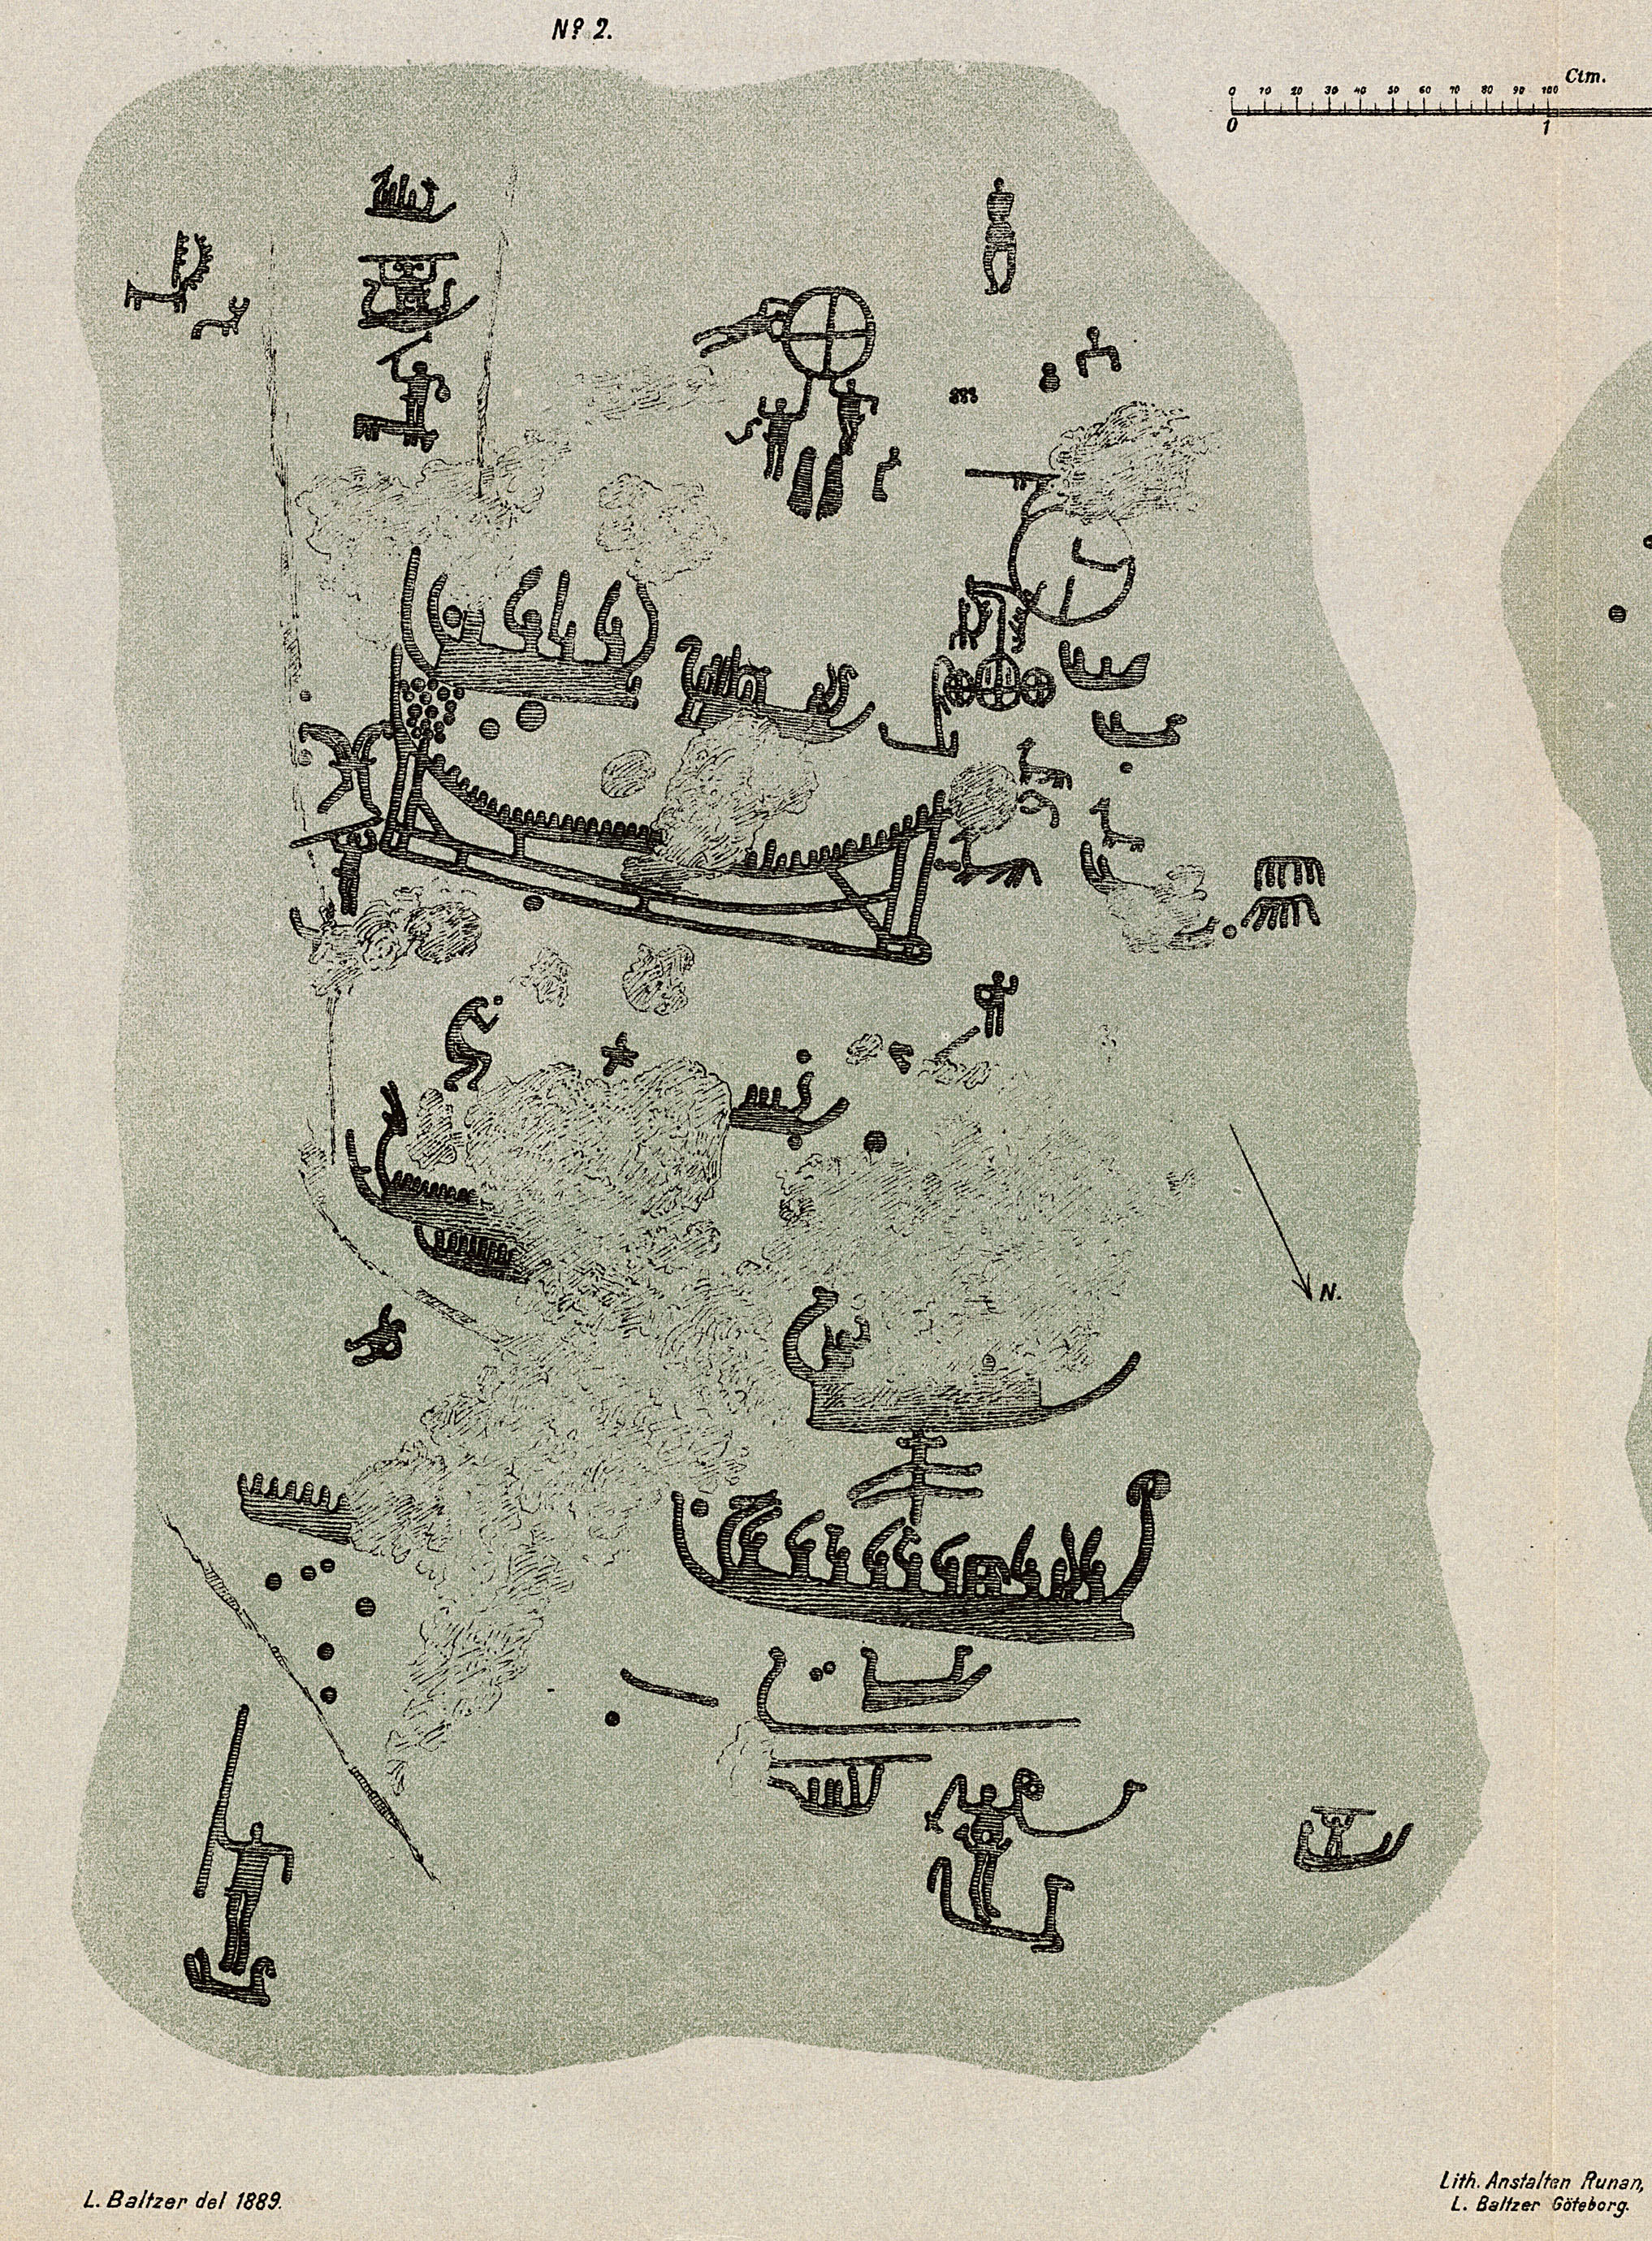 Nº 2.
Ctm.
0 10 20 30 40 50 60 70 80 90 100
0 1
N.
L. Baltzer del 1889.
Lith. Anstalten Runan,
L. Baltzer Göteborg.